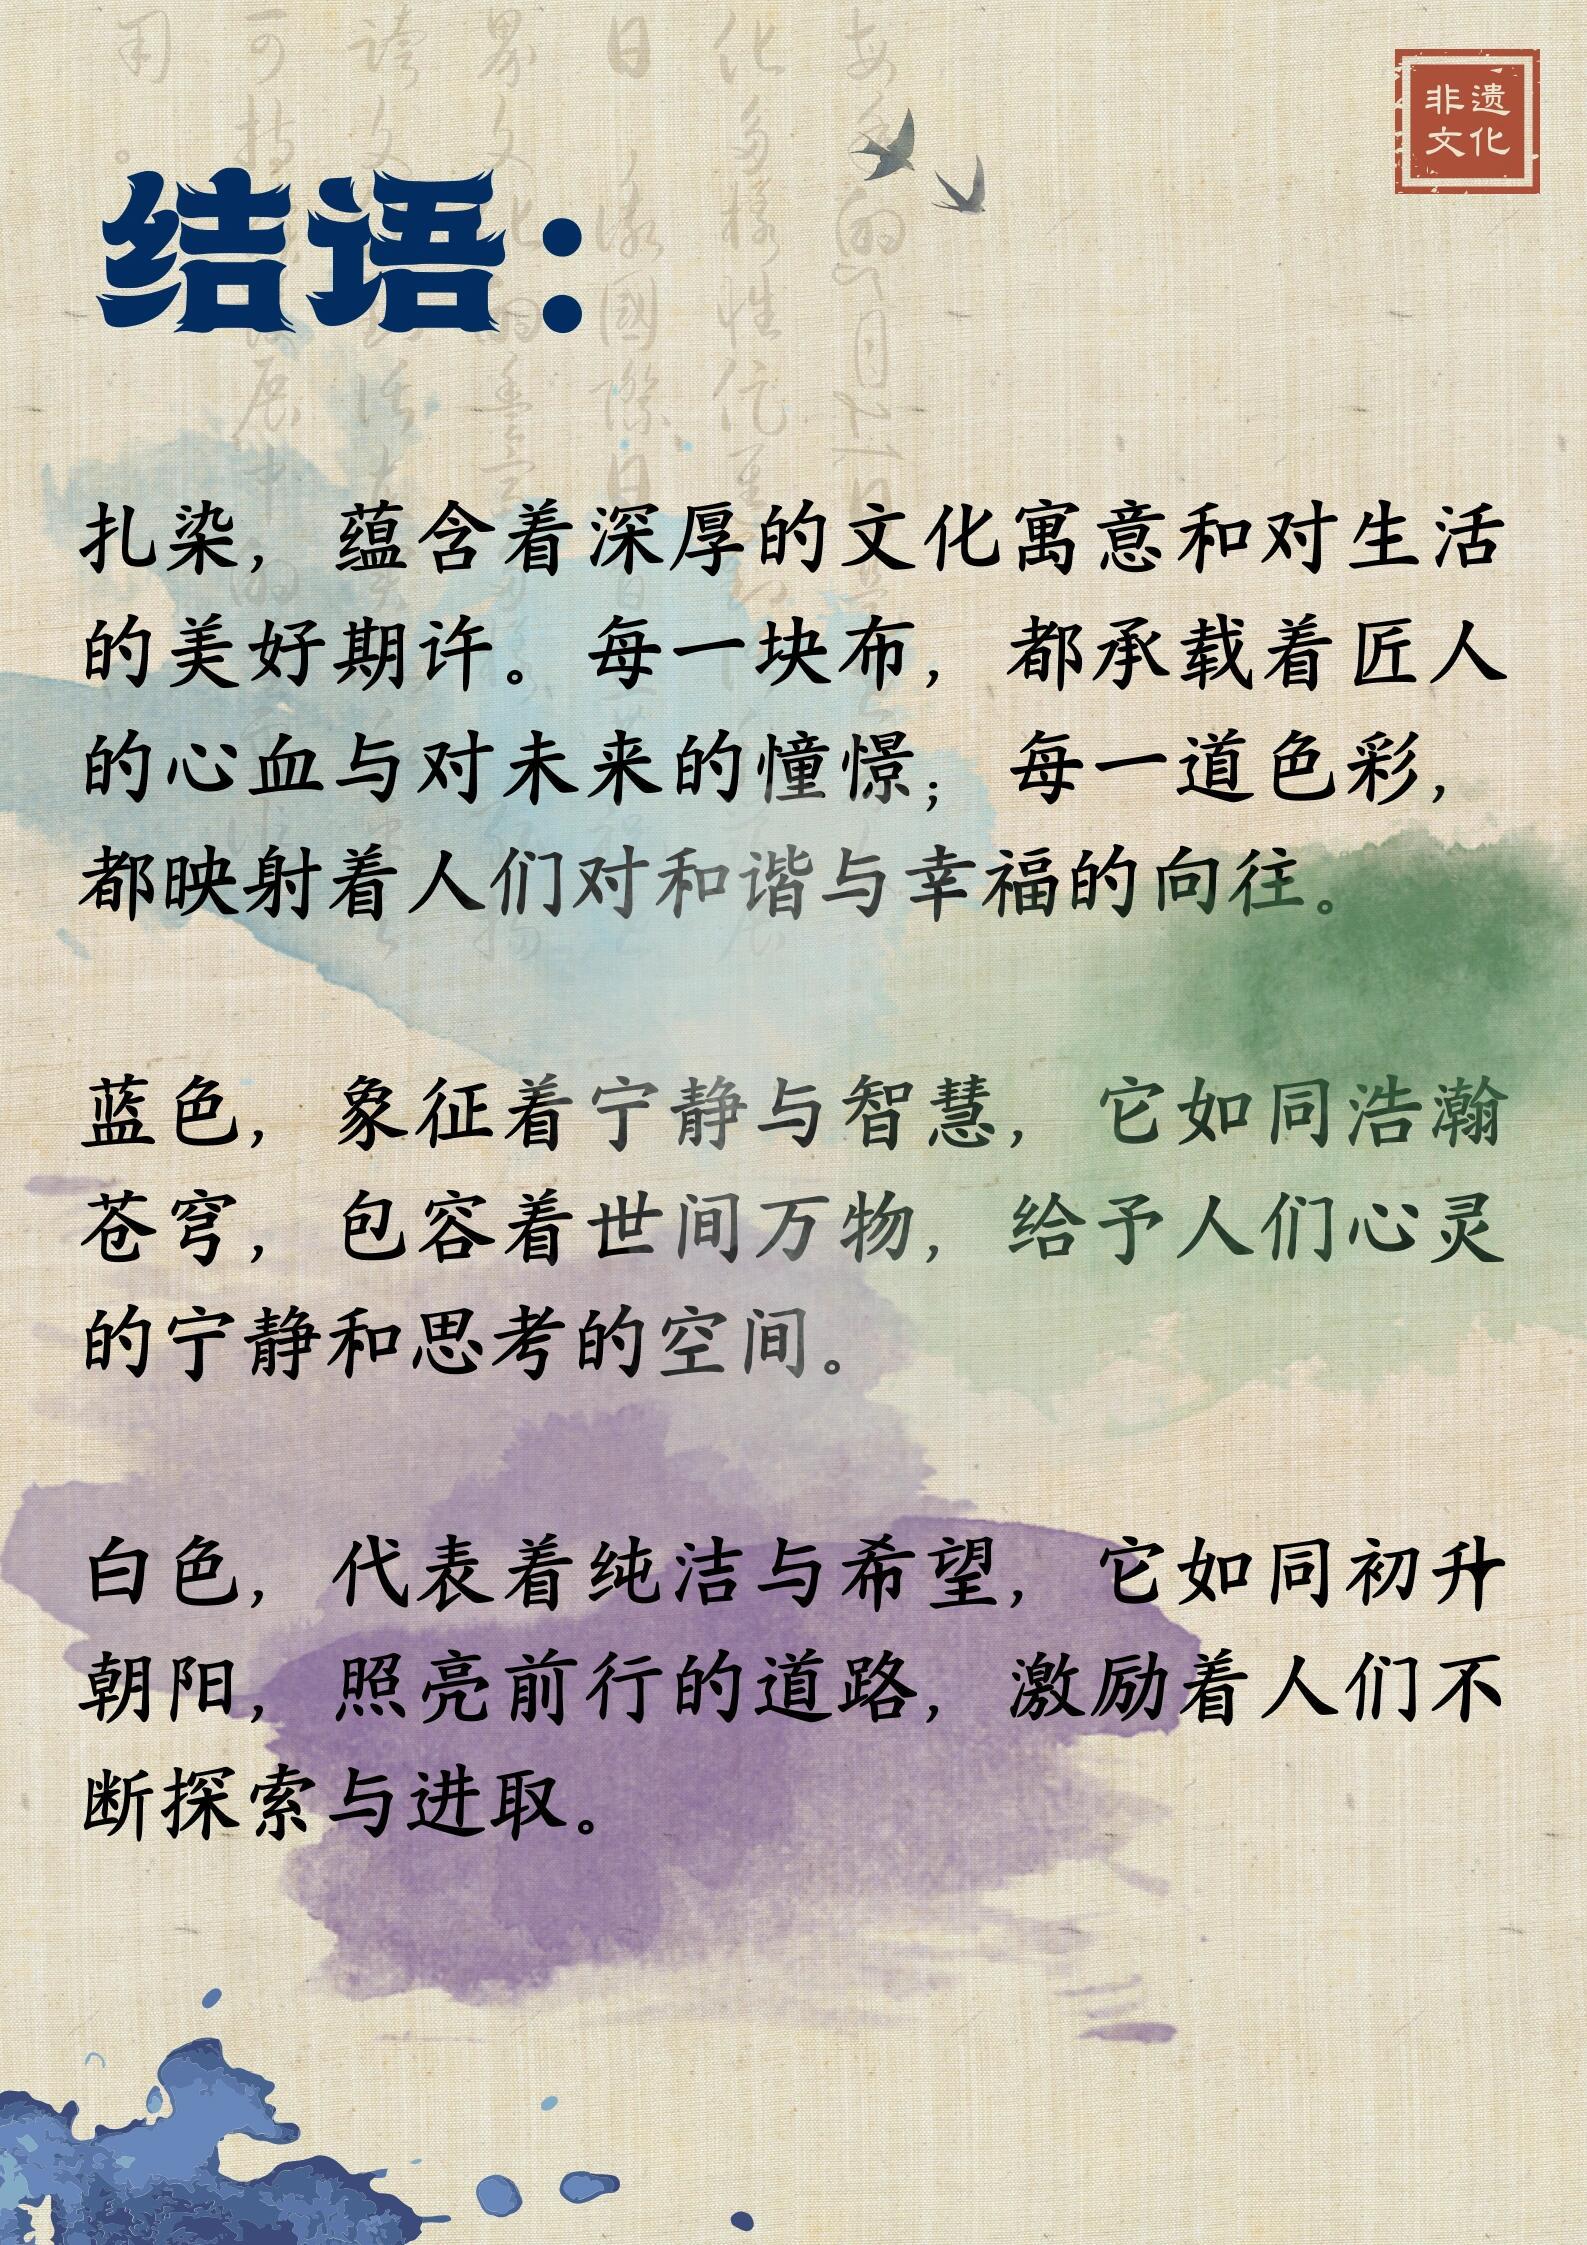 非遗
文化
结语：
扎染，蕴含着深厚的文化寓意和对生活
的美好期许。每一块布，都承载着匠人
的心血与对未来的憧憬；每一道色彩，
都映射着人们对和谐与幸福的向往。
蓝色，象征着宁静与智慧，它如同浩瀚
苍穹，包容着世间万物，给予人们心灵
的宁静和思考的空间。
白色，代表着纯洁与希望，它如同初升
朝阳，照亮前行的道路，激励着人们不
断探索与进取。